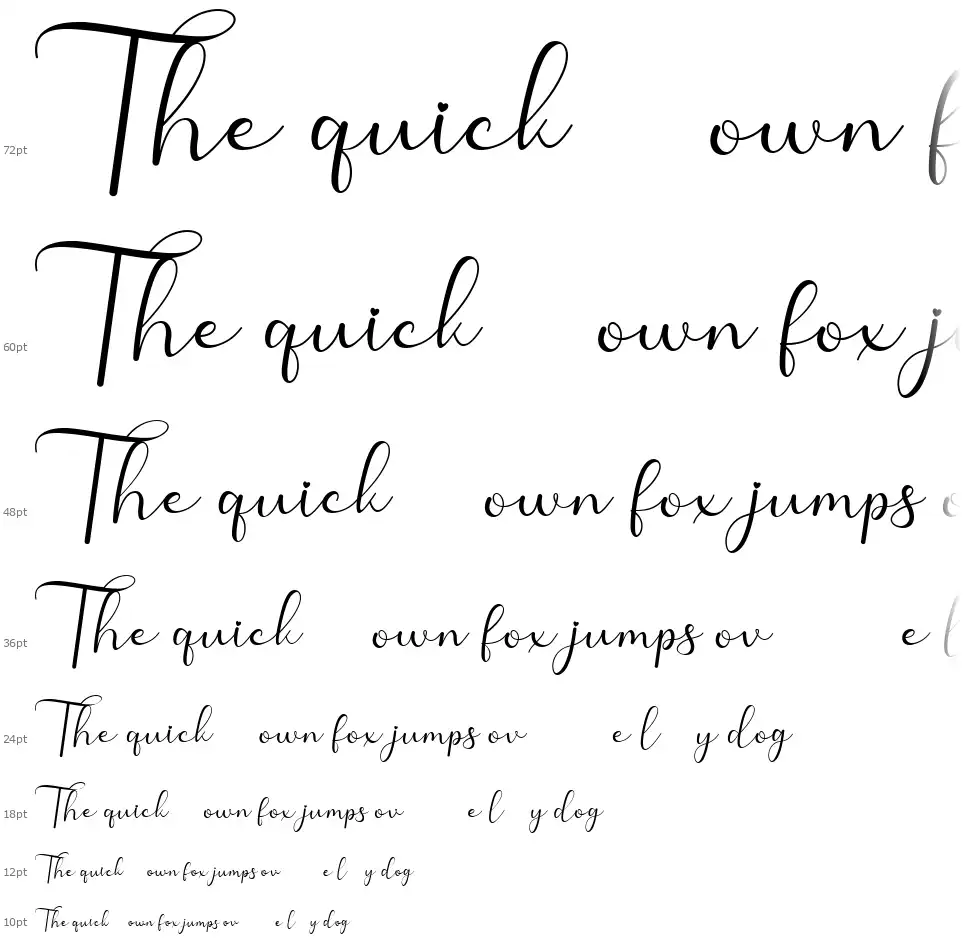 72pt The quick own f
60pt The quick own fox ju
48pt The quick own fox jumps o
36pt The quick own fox jumps ov e l
24pt The quick own fox jumps ov e l y dog
18pt The quick own fox jumps ov e l y dog
12pt The quick own fox jumps ov e l y dog
10pt The quick own fox jumps ov e l y dog